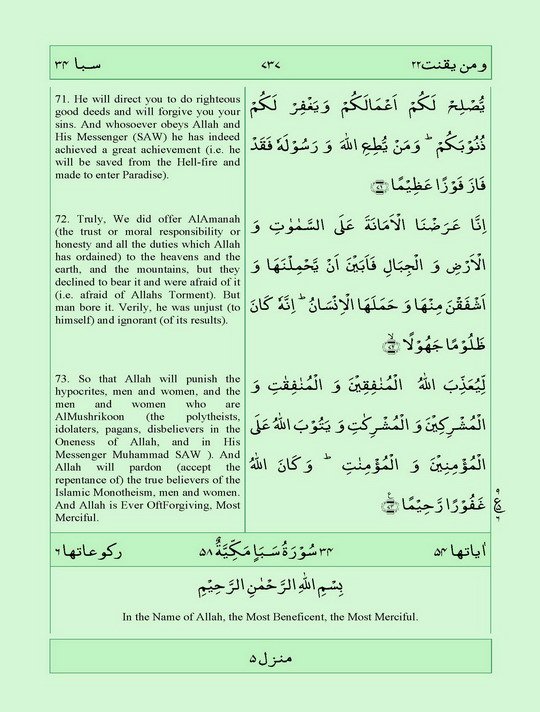 ومن يقنت ۲۲ ۷۳۷ سبا ۳۴
71. He will direct you to do righteous
good deeds and will forgive you your
sins. And whosoever obeys Allah and
His Messenger (SAW) he has indeed
achieved a great achievement (i.e. he
will be saved from the Hell-fire and
made to enter Paradise).
يُّصْلِحْ لَكُمْ اَعْمَالَكُمْ وَيَغْفِرْ لَكُمْ
ذُنُوْبَكُمْ ؕ وَمَنْ يُّطِعِ اللّٰهَ وَ رَسُوْلَهٗ فَقَدْ
فَازَ فَوْزًا عَظِيْمًا ﴿۷۱﴾
72. Truly, We did offer AlAmanah
(the trust or moral responsibility or
honesty and all the duties which Allah
has ordained) to the heavens and the
earth, and the mountains, but they
declined to bear it and were afraid of it
(i.e. afraid of Allahs Torment). But
man bore it. Verily, he was unjust (to
himself) and ignorant (of its results).
اِنَّا عَرَضْنَا الْاَمَانَةَ عَلَى السَّمٰوٰتِ وَ
الْاَرْضِ وَ الْجِبَالِ فَاَبَيْنَ اَنْ يَّحْمِلْنَهَا وَ
اَشْفَقْنَ مِنْهَا وَ حَمَلَهَا الْاِنْسَانُ ؕ اِنَّهٗ كَانَ
ظَلُوْمًا جَهُوْلًا ۙ﴿۷۲﴾
73. So that Allah will punish the
hypocrites, men and women, and the
men and women who are
AlMushrikoon (the polytheists,
idolaters, pagans, disbelievers in the
Oneness of Allah, and in His
Messenger Muhammad SAW ). And
Allah will pardon (accept the
repentance of) the true believers of the
Islamic Monotheism, men and women.
And Allah is Ever OftForgiving, Most
Merciful.
لِّيُعَذِّبَ اللّٰهُ الْمُنٰفِقِيْنَ وَ الْمُنٰفِقٰتِ وَ
الْمُشْرِكِيْنَ وَ الْمُشْرِكٰتِ وَ يَتُوْبَ اللّٰهُ عَلَى
الْمُؤْمِنِيْنَ وَ الْمُؤْمِنٰتِ ؕ وَ كَانَ اللّٰهُ
غَفُوْرًا رَّحِيْمًا ﴿۷۳﴾
اٰياتها ۵۴ ۳۴ سُوْرَةُ سَبَاٍ مَكِّيَّةٌ ۵۸ ركوعاتها ۶
بِسْمِ اللّٰهِ الرَّحْمٰنِ الرَّحِيْمِ
In the Name of Allah, the Most Beneficent, the Most Merciful.
منزل ۵